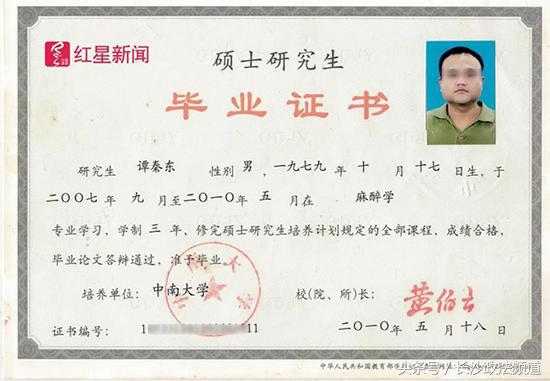 红星新闻
硕士研究生
毕业证书
研究生 谭秦东 性别 男，一九七九 年 十 月 十七 日生，于
二〇〇七 年 九 月至二〇一〇年 五 月在 麻醉学
专业学习，学制 三 年，修完硕士研究生培养计划规定的全部课程，成绩合格，
毕业论文答辩通过，准予毕业。
培养单位：中南大学 校(院、所)长：黄伯云
证书编号：1 11 二〇一〇年 五 月 十八 日
中华人民共和国教育部学
头条号/长沙政法频道